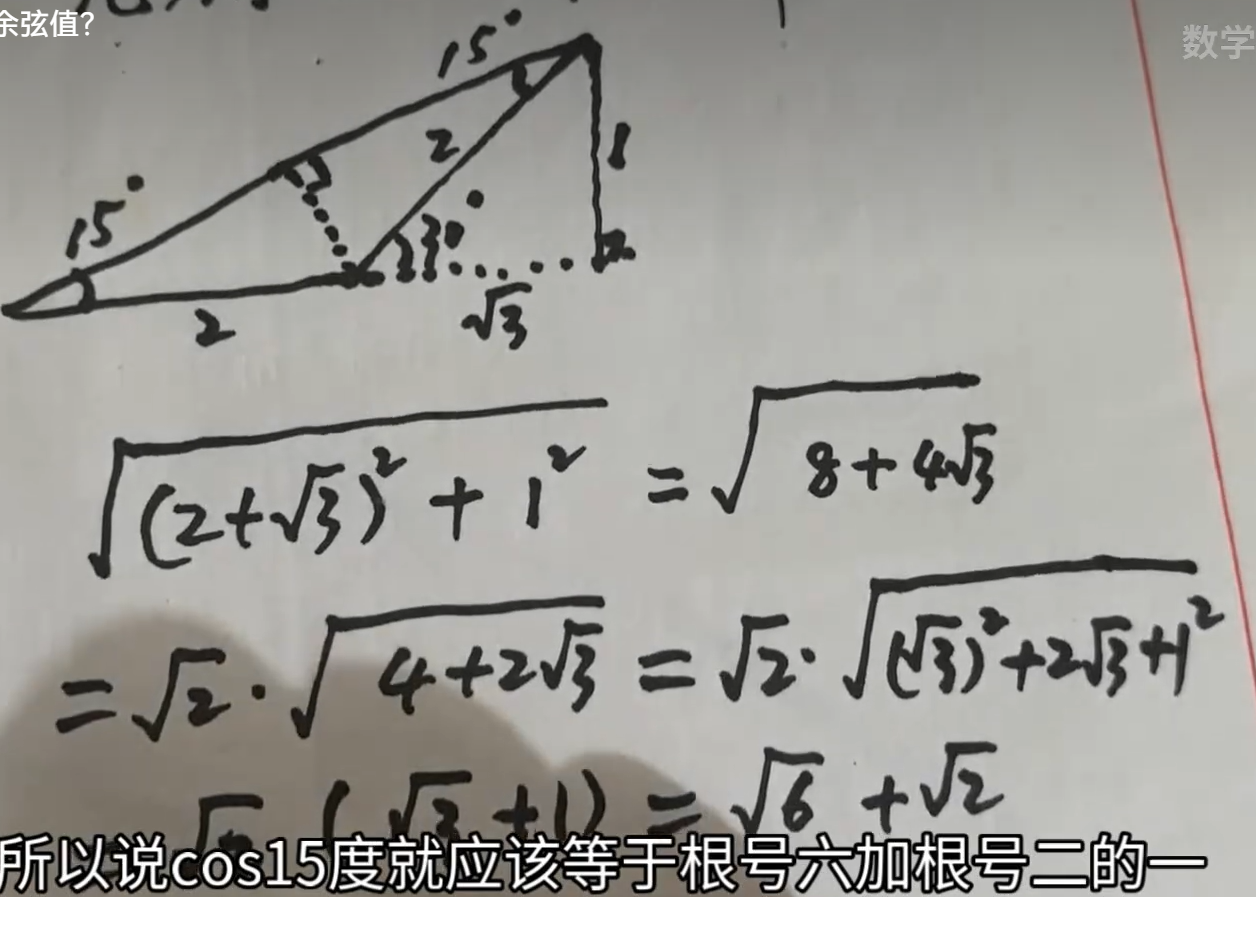 余弦值？
数学
15°
2
1
15°
30°
2
√3
√((2+√3)² + 1²) = √(8+4√3)
= √2 · √(4+2√3) = √2 · √((√3)²+2√3+1²)
(√3+1) = √6 + √2
所以说cos15度就应该等于根号六加根号二的一